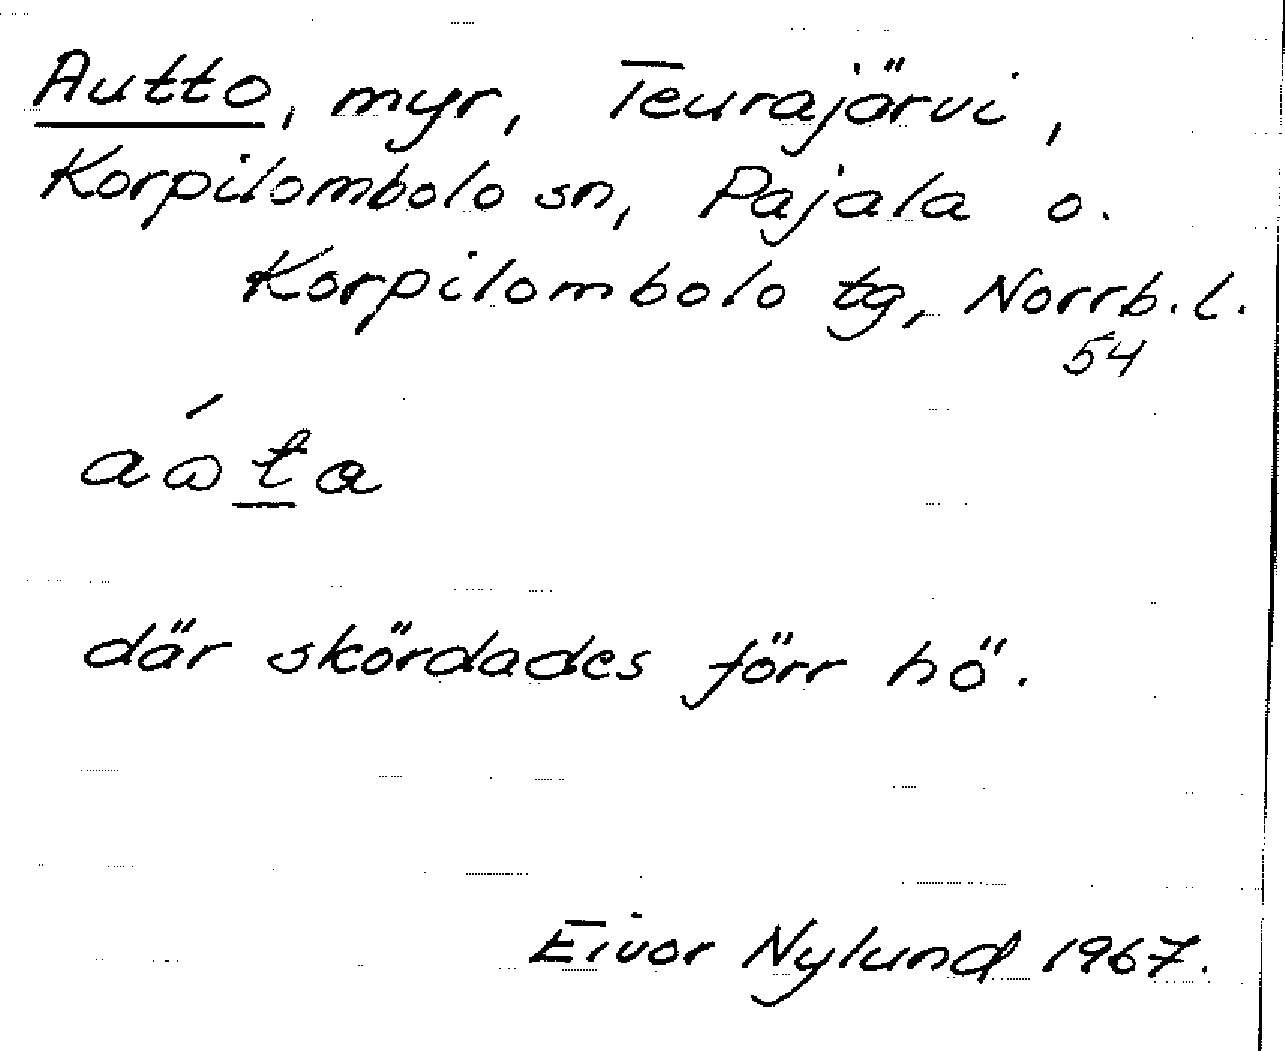 Autto, myr, Teurajärvi,
Korpilombolo sn, Pajala o.
Korpilombolo tg, Norrb. l.
54
där skördades förr hö.
Eivor Nylund 1967.